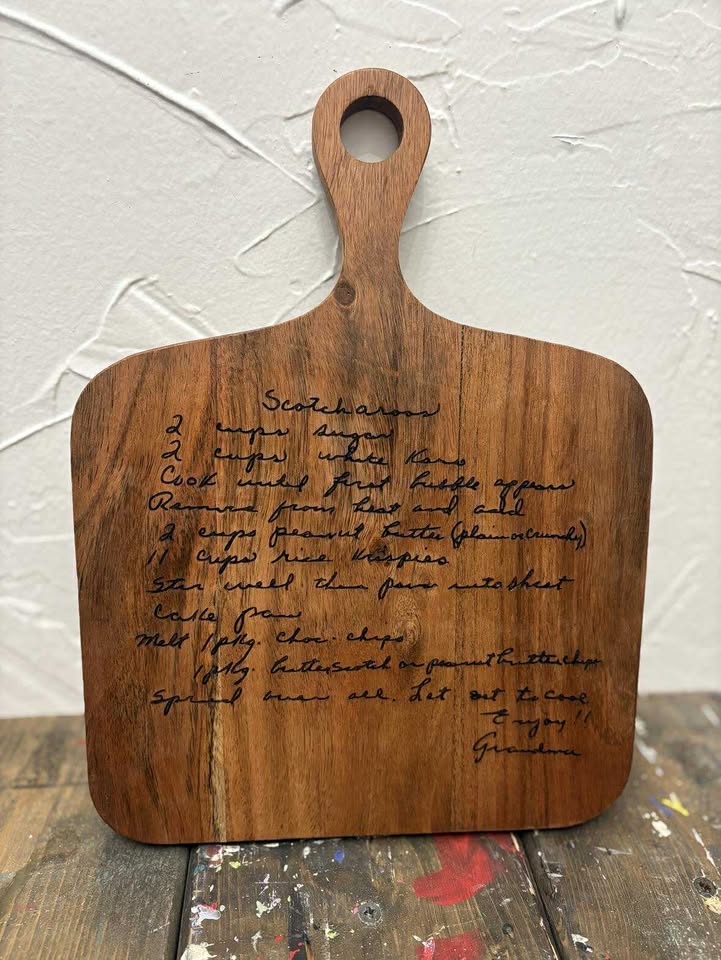 Scotcharoos
2 cups sugar
2 cups white Karo
Cook until first bubble appears
Remove from heat and add
2 cups peanut butter (plain or crunchy)
11 cups rice Krispies
Stir well then pour into sheet
Cake pan
Melt 1 pkg. choc. chips
1 pkg. butterscotch or peanut butter chips
Spread over all. Let set to cool
Enjoy!!
Grandma